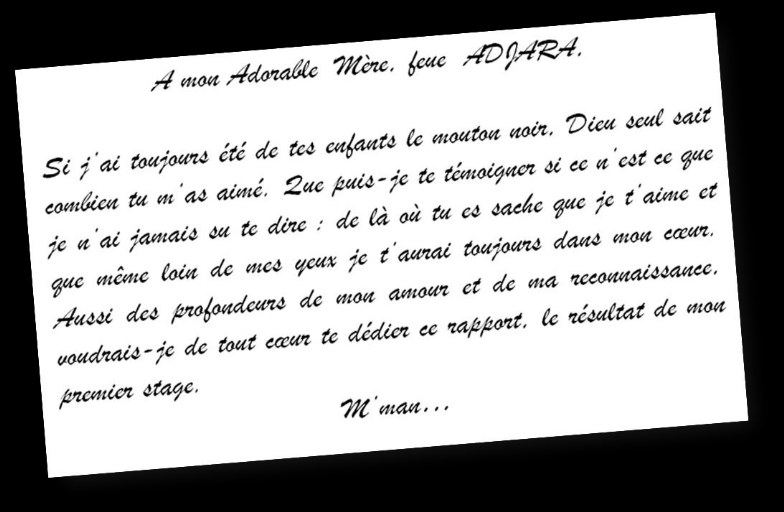 A mon Adorable Mère, feue ADJARA,
Si j'ai toujours été de tes enfants le mouton noir, Dieu seul sait
combien tu m'as aimé. Que puis-je te témoigner si ce n'est ce que
je n'ai jamais su te dire : de là où tu es sache que je t'aime et
que même loin de mes yeux je t'aurai toujours dans mon cœur.
Aussi des profondeurs de mon amour et de ma reconnaissance,
voudrais-je de tout cœur te dédier ce rapport, le résultat de mon
premier stage.
M'man...